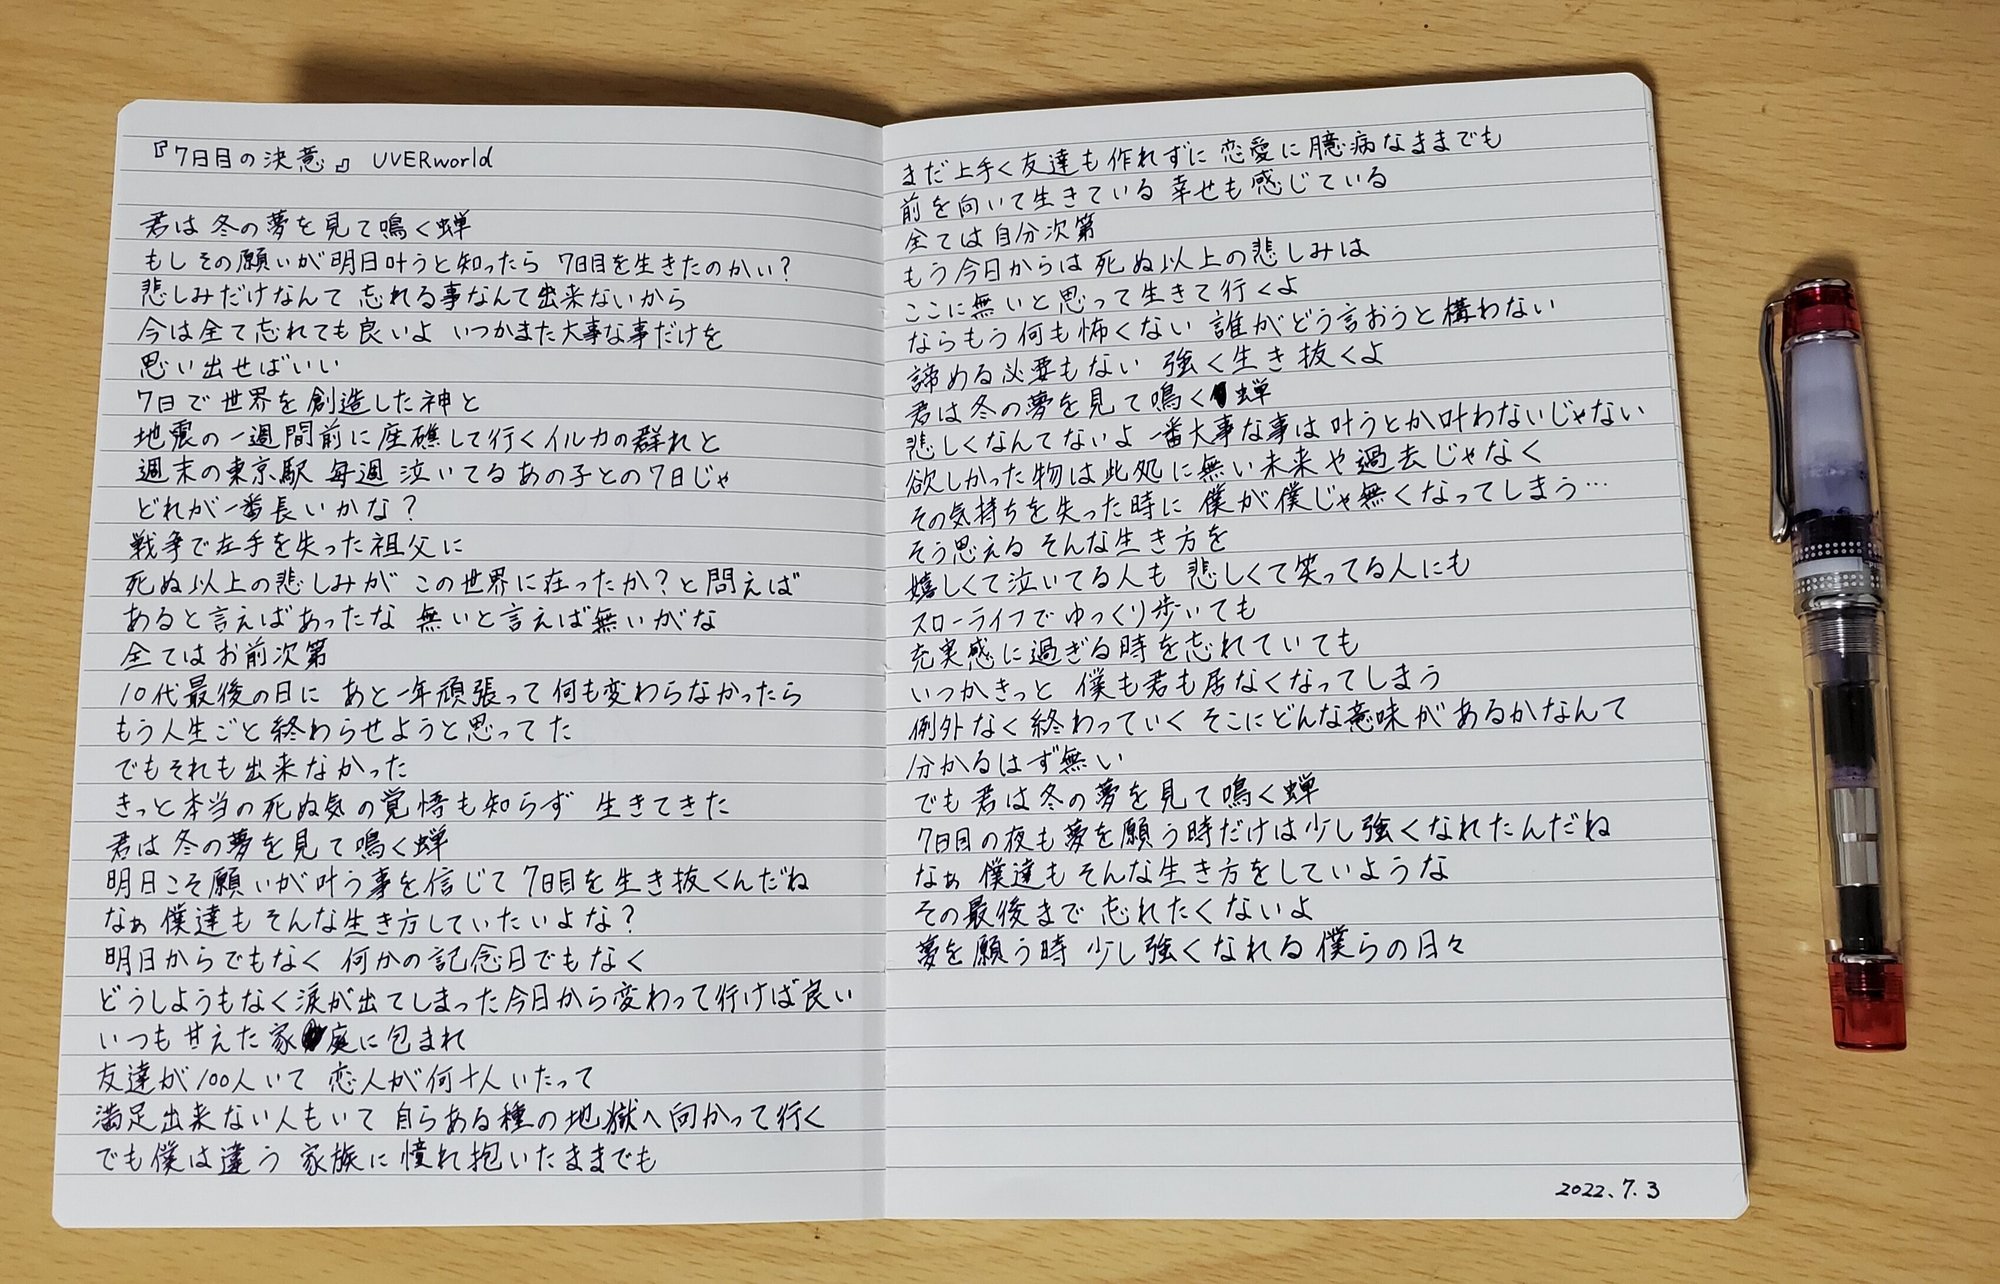 『7日目の決意』 UVERworld
君は 冬の夢を見て鳴く蝉
もし その願いが明日叶うと知ったら 7日目を生きたのかい？
悲しみだけなんて 忘れる事なんて出来ないから
今は全て忘れても良いよ いつかまた大事な事だけを
思い出せばいい
7日で世界を創造した神と
地震の一週間前に座礁して行くイルカの群れと
週末の東京駅 毎週 泣いてるあの子との7日じゃ
どれが一番長いかな？
戦争で左手を失った祖父に
死ぬ以上の悲しみが この世界に在ったか？と問えば
あると言えばあったな 無いと言えば無いがな
全てはお前次第
10代最後の日に あと一年頑張って何も変わらなかったら
もう人生ごと終わらせようと思ってた
でもそれも出来なかった
きっと本当の死ぬ気の覚悟も知らず 生きてきた
君は冬の夢を見て鳴く蝉
明日こそ願いが叶う事を信じて 7日目を生き抜くんだね
なぁ 僕達も そんな生き方していたいよな？
明日からでもなく 何かの記念日でもなく
どうしようもなく涙が出てしまった今日から変わって行けば良い
いつも甘えた家庭に包まれ
友達が100人いて 恋人が何十人いたって
満足出来ない人もいて 自らある種の地獄へ向かって行く
でも僕は違う 家族に憧れ抱いたままでも
まだ上手く友達も作れずに 恋愛に臆病なままでも
前を向いて生きている 幸せも感じている
全ては自分次第
もう今日からは 死ぬ以上の悲しみは
ここに無いと思って生きて行くよ
ならもう何も怖くない 誰がどう言おうと構わない
諦める必要もない 強く生き抜くよ
君は冬の夢を見て鳴く蝉
悲しくなんてないよ 一番大事な事は叶うとか叶わないじゃない
欲しかった物は此処に無い未来や過去じゃなく
その気持ちを失った時に 僕が僕じゃ無くなってしまう…
そう思える そんな生き方を
嬉しくて泣いてる人も 悲しくて笑ってる人にも
スローライフで ゆっくり歩いても
充実感に過ぎる時を忘れていても
いつかきっと 僕も君も居なくなってしまう
例外なく終わっていく そこにどんな意味があるかなんて
分かるはず無い
でも君は冬の夢を見て鳴く蝉
7日目の夜も夢を願う時だけは少し強くなれたんだね
なぁ 僕達も そんな生き方をしていような
その最後まで 忘れたくないよ
夢を願う時 少し強くなれる 僕らの日々
2022.7.3